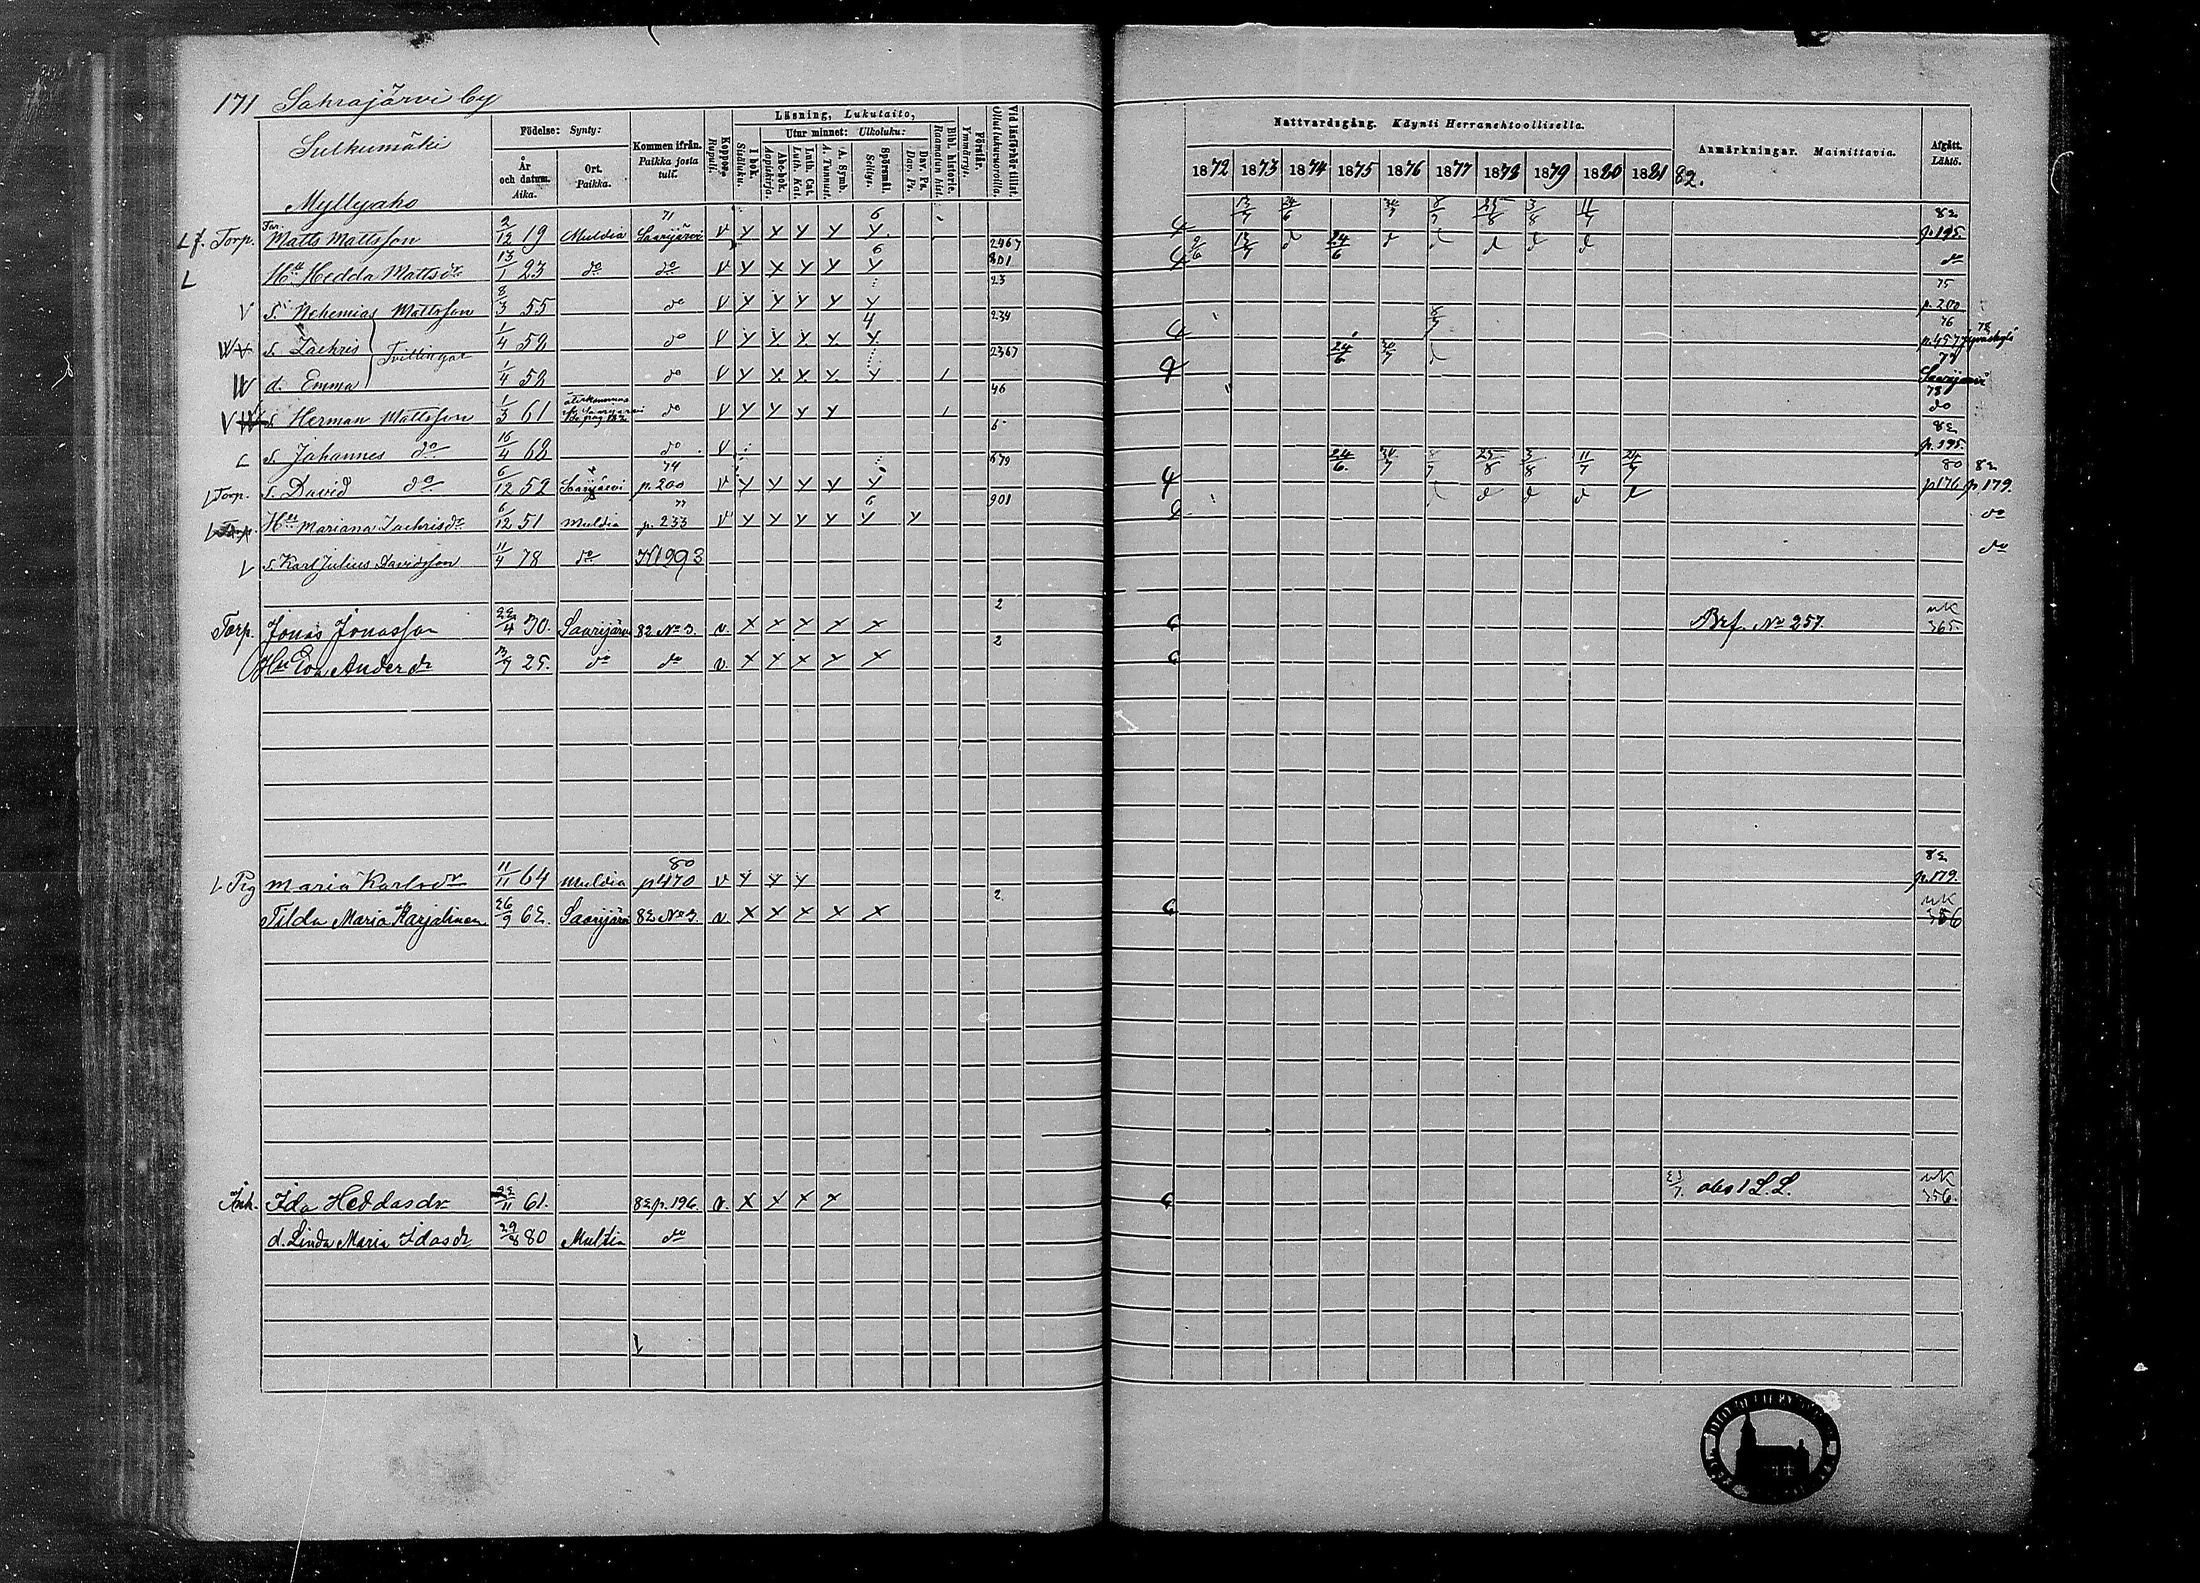 171 Sahrajärvi by
Sulkumäki
Myllyaho
Födelse: Synty:
År och datum. Aika.
Ort. Paikka.
Kommen ifrån. Paikka josta tult.
Koppor. Rupuli.
Läsning, Lukutaito,
I bok. Sisäluku.
Utur minnet: Ulkoluku:
Abc-bok. Aapiskirja.
Luth. Cat. Luth. Ka.
A. Symb. A. Tunnust.
Spörsmål. Selitys.
Dav. Ps. Dav. Ps.
Bibl. historie. Raamatun hist.
Förstår. Ymmärrys.
Vid läsförhör tillst. Ollut lukuvuoroilla.
Nattvardsgång. Käynti Herranehtoollisella.
1872 1873 1874 1875 1876 1877 1878 1879 1880 1881 82.
Anmärkningar. Mainittavia.
Afgått. Lähtö.
Torp. Matts Mattsson 2/12 19 Muldia 71 Saarijärvi V Y Y Y Y 6 Y 2467 13/7 24/6 30/7 8/7 25/8 3/8 11/7 82 p.195.
L Hu Hedda Mattsdr 13/1 23 do do V Y Y Y Y 6 Y 801 2/6 13/7 d 24/6 d d d d d do
V s. Nehemias Mattsson 8/3 55 do V Y Y Y Y Y 23 75 p. 200
s. Zachris } Tvillingar 1/4 58 do V Y Y Y Y 4 Y 234 8/7 76 p.457 78 Jyväskylä
d. Emma 1/4 58 do V Y Y Y Y Y 1 2367 24/6 30/7 d 77 Saarijärvi
s. Herman Mattsson 1/3 61 do V Y Y Y Y 1 46 78 do
L s. Johannes do 16/4 68 do V 6 82 p.195.
L Torp. s. David do 6/12 52 Saarijärvi 74 p. 200 V Y Y Y Y Y 679 24/6 30/7 8/7 25/8 3/8 11/7 24/7 80 p176 82 p.179.
Hu Mariana Zachrisdr 6/12 51 Muldia 77 p. 233 V Y Y Y Y 6 Y Y 901 d d d d d do
L s. Karl Julius Davidsson 11/4 78 do do
Torp. Jonas Jonasson 22/4 30. Saarijärvi 82 No 3. v. X X X X X 2 Brf. No 257. nK 365.
Hu Eva Andersdr 25. do do v. X X X X X 2
L Pig Maria Karlsdr 11/11 64 Muldia 80 p470 V Y Y Y 82 p.179.
Tilda Maria Karjalinen 26/9 62. Saarijärvi 82 No 3. v X X X X X 2 nK 356
Inh. Ida Heddasdr 22/11 61. 82 p. 196 v. X X X X abs 1 L.L. nK 356.
d. Linda Maria Idasdr 29/8 80 Multia do